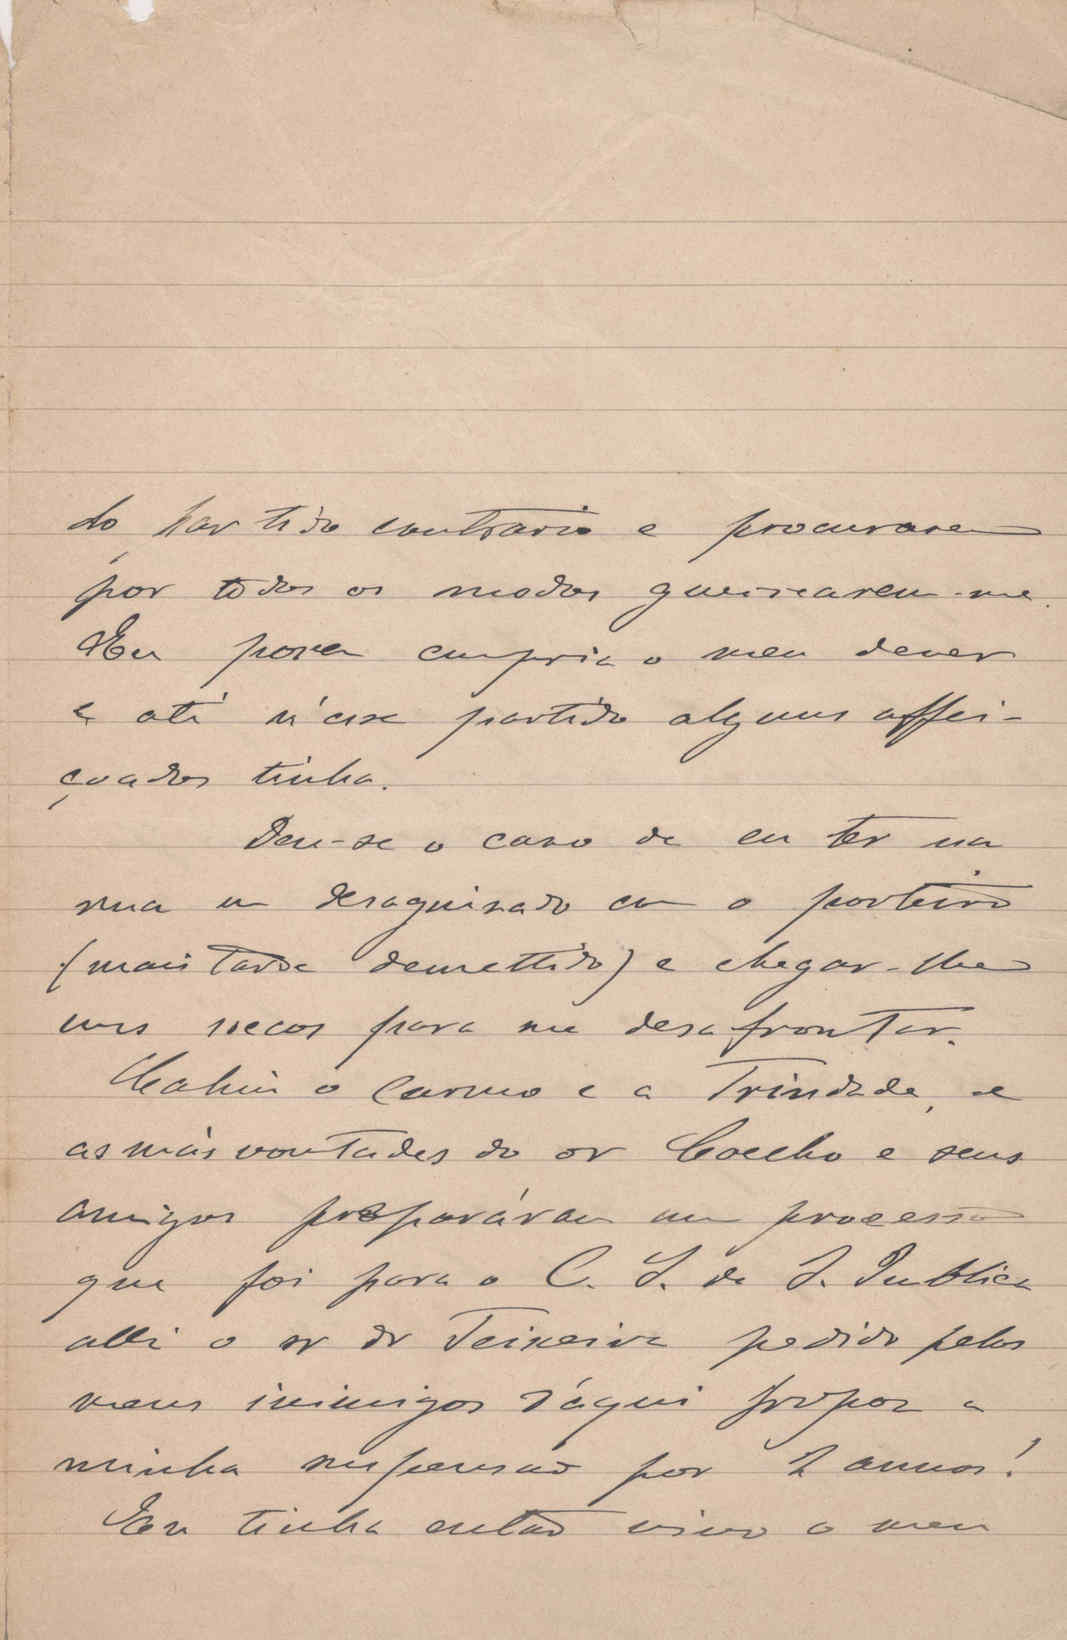 do partido contrario e procurarem
por todos os modos guerrearem-me.
Eu porem cumpria o meu dever
e até n'esse partido alguns affei-
çoados tinha.
Deu-se o caso de eu ter na
rua um desaguisado com o porteiro
(mais tarde demettido) e chegar-lhe
uns socos para me desafrontar.
Cahiu o Carmo e a Trindade, e
as más vontades do sr Coelho e seus
amigos prepararam um processo
que foi para o C. S. de I. Publica
alli o sr dr Teixeira pedido pelos
meus inimigos d'aqui propoz a
minha suspensão por 2 annos!
Eu tinha então vivo o meu